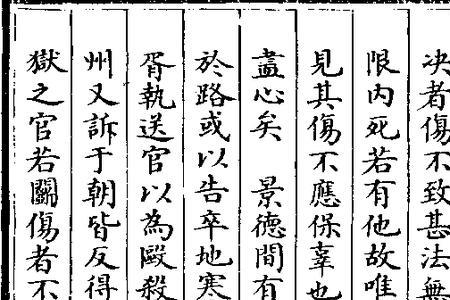 决者傷不致甚法無
限内死若有他故唯
見其傷不應保辜也
盡心矣　景德間有
於路或以告卒地寒
胥執送官以為毆殺
州又訴于朝皆反得
獄之官若鬭傷者不